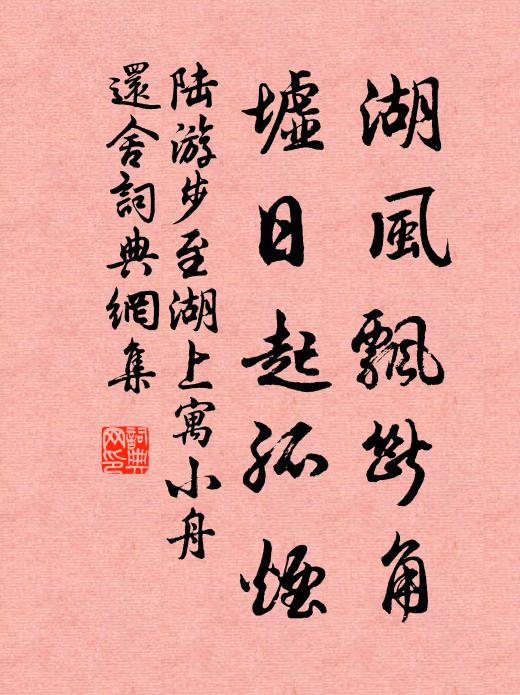 湖風飄斷角
墟日起孤煙
陸游步至湖上寓小舟
還舍詞典網集
詞典
网印